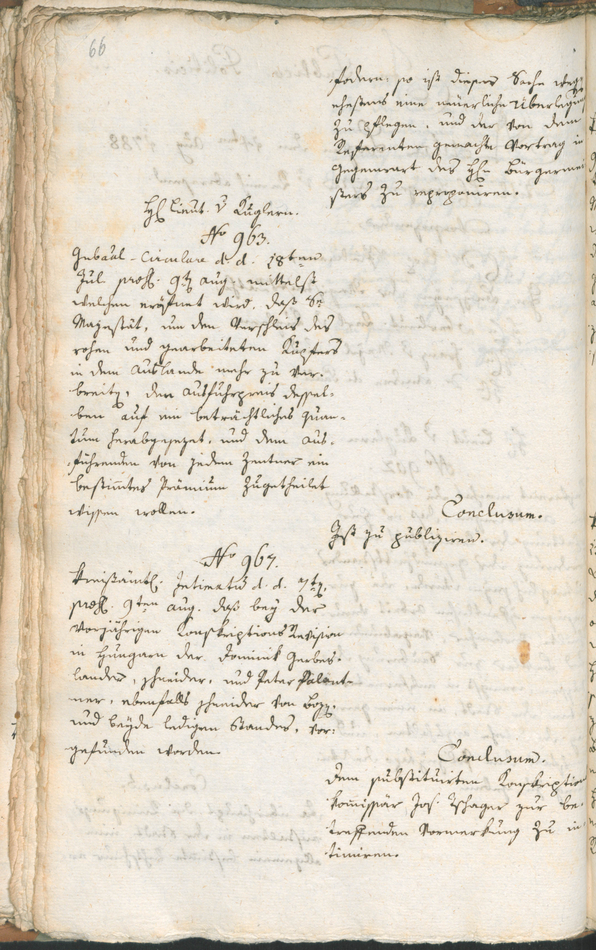 66
fodern, so ist dieser Sache wegen
ehestens eine neuerliche Überlegung
zu pflegen, und der von dem
Referenten gemachte Vortrag in
Gegenwart des H. Bürgermei
sters zu reproponiren.
H. Lieut. v Kuglern.
No 963.
Gubãal-Circulare d. d. 18ten
Jul. præs. 9t aug. mittelst
welchen eröfnet wird, daß Se
Majestät, um den Verschleis des
rohen und gearbeiteten Kupfers
in dem Auslande mehr zu ver-
breiten, den Ausfuhrpreis dessel-
ben auf ein beträchtliches Quan-
tum herabgesezet, und dem Aus-
führenden von jedem Zentner ein
bestimtes Præmium zugetheilet
wissen wollen.
Conclusum.
Ist zu publiziren.
No 967.
Kreisämtl. Intimatũ d. d. 7t,
præs. 9ten aug. daß bey der
vorjährigen Konskriptions Revision
in Hungarn der Dominik
schneider, und Peter
ner, ebenfalls schneider von Boz,
und beyde ledigen Standes, vor-
gefunden worden.
Conclusum.
Dem substituirten Konskriptions
kommissär Jos. Tschager zur be-
treffenden Vormerkung zu in-
timiren.